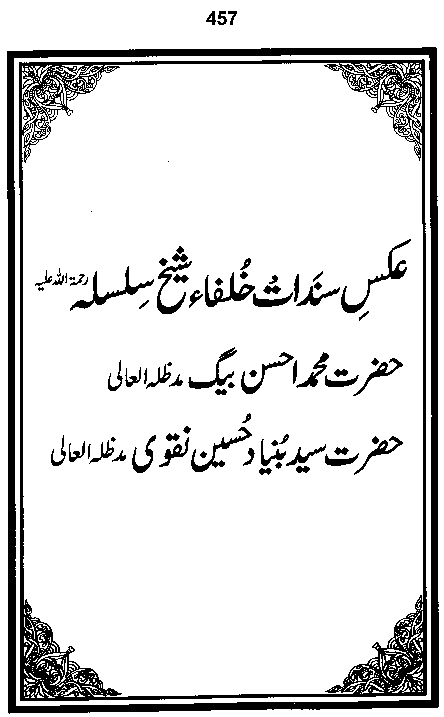 457
عکسِ سنَداتُ خُلفاء شیخِ سِلسلہ رحمۃ اللہ علیہ
حضرت محمد احسن بیگ مدظلہ العالی
حضرت سید بُنیاد حُسین نقوی مدظلہ العالی